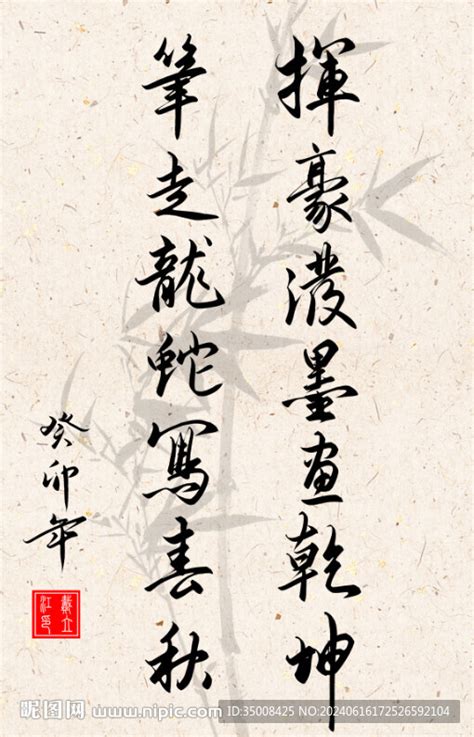 揮豪潑墨画乾坤
筆走龍蛇寫春秋
癸卯年
戴立
江印
昵图网 www.nipic.com
ID:35008425 NO:20240616172526592104